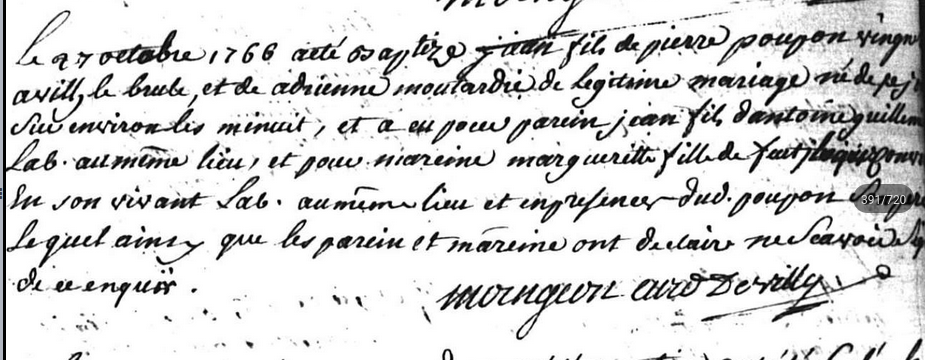 le 27 octobre 1766 aeté Baptizé jean fils de pierre poupon vingn
avilly le brule, et de adrienne moutardie de legitime mariage né de
Sur environ les minuit, et a eu pour parein jean fils dantoine guillem
Lab. au même lieu, et pour mareine margueritte fille de
En son vivant Lab. au même lieu et en presence dud. poupon
Lequel ainsy que les parein et mareine ont declaré ne Scavoir Sig
de ce enquis.
mongeon curé De villy
391/720